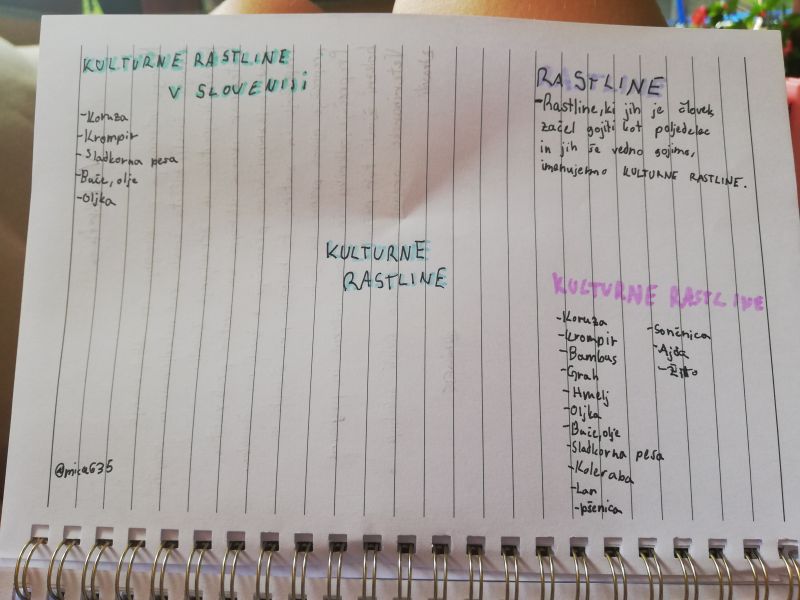 KULTURNE RASTLINE
V SLOVENIJI
-Koruza
-Krompir
-Sladkorna pesa
-Buče, olje
-Oljka
RASTLINE
-Rastline, ki jih je človek
začel gojiti kot poljedelec
in jih še vedno gojimo,
imenujemo KULTURNE RASTLINE.
KULTURNE
RASTLINE
KULTURNE RASTLINE
-Koruza
-Krompir
-Bambus
-Grah
-Hmelj
-Oljka
-Buče, olje
-Sladkorna pesa
-Koleraba
-Lan
-pšenica
-Sončnica
-Ajda
-Žito
@mica635